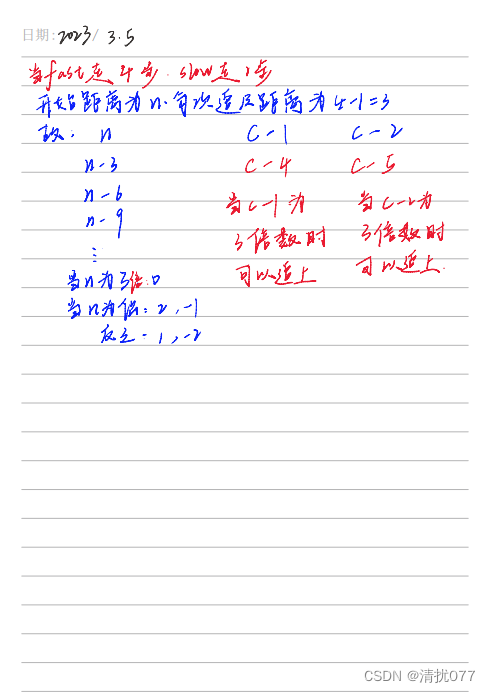 日期: 2023/ 3.5
当fast走4步. slow走1步
开始距离为n.每次追及距离为4-1=3
故: n C-1 C-2
n-3 C-4 C-5
n-6 当C-1为 当C-2为
n-9 3倍数时 3倍数时
⋮ 可以追上 可以追上.
当n为3倍:0
当n为偶: 2,-1
反之-1,-2
CSDN @清扰077